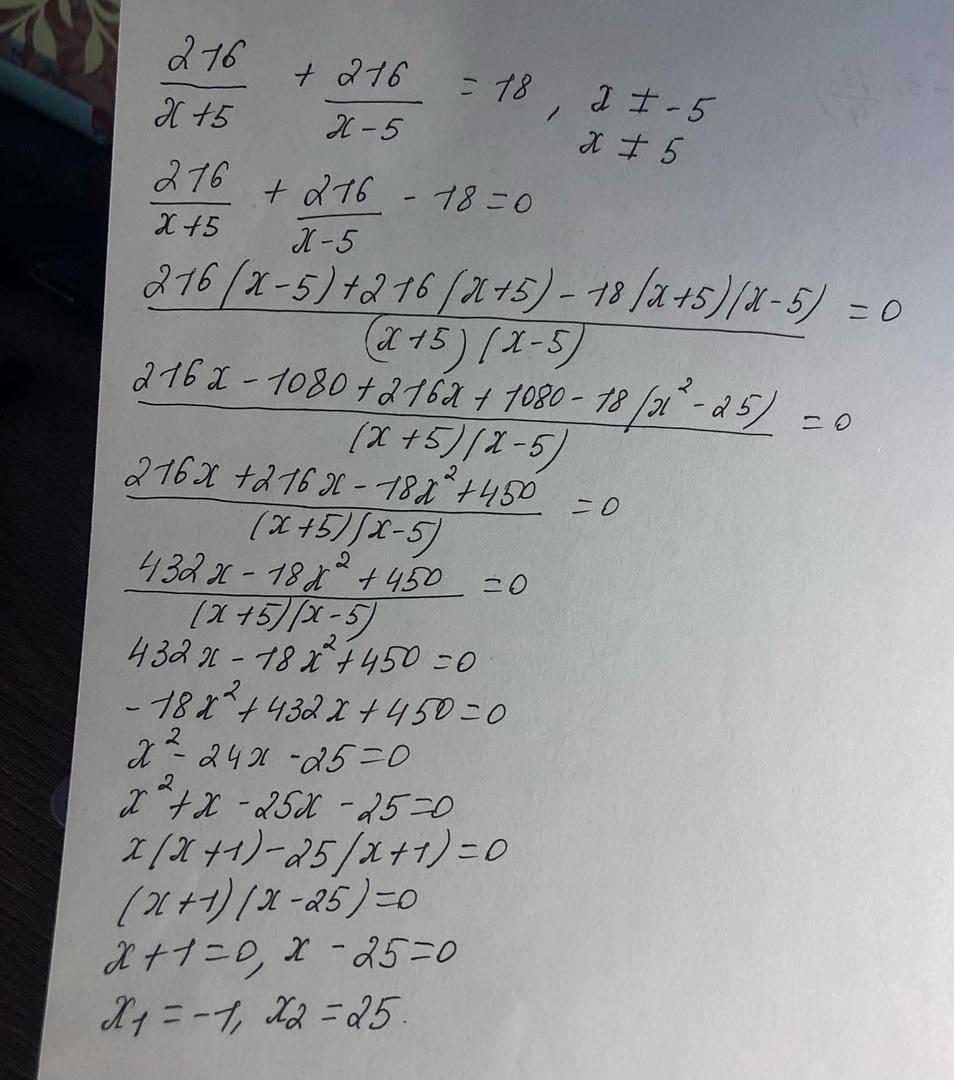 216/(x+5) + 216/(x-5) = 18, x ≠ -5
x ≠ 5
216/(x+5) + 216/(x-5) - 18 = 0
(216(x-5)+216(x+5)-18(x+5)(x-5))/((x+5)(x-5)) = 0
(216x-1080+216x+1080-18(x²-25))/((x+5)(x-5)) = 0
(216x+216x-18x²+450)/((x+5)(x-5)) = 0
(432x-18x²+450)/((x+5)(x-5)) = 0
432x-18x²+450=0
-18x²+432x+450=0
x²-24x-25=0
x²+x-25x-25=0
x(x+1)-25(x+1)=0
(x+1)(x-25)=0
x+1=0, x-25=0
x₁=-1, x₂=25.